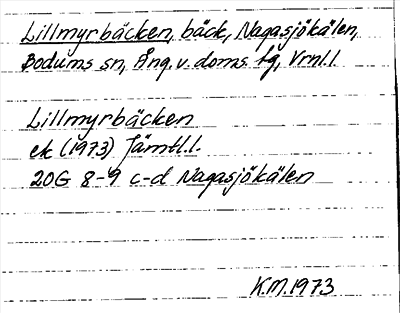 Lillmyrbäcken, bäck, Nagasjökälen,
Bodums sn, Ång. v. doms. tg, Vrnl. l.
Lillmyrbäcken
ek (1973) Jämtl. l.
20G 8-9 c-d Nagasjökälen
K.M. 1973